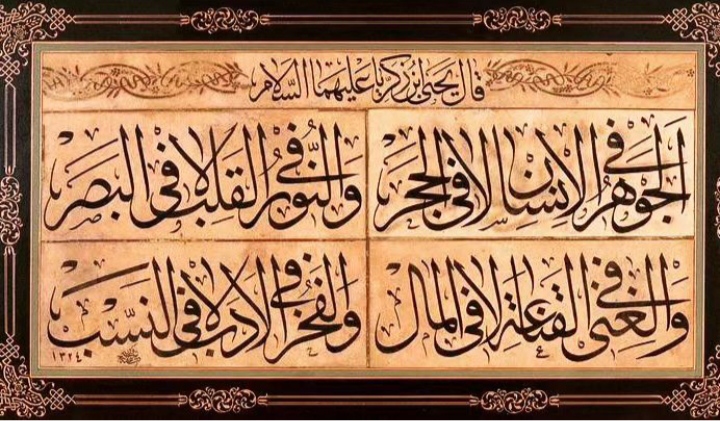 قال يحيى ابن زكريا عليهما السلام
الجوهر في الإنسان لا في الحجر
والنور في القلب لا في البصر
والغنى في القناعة لا في المال
والفخر في الأدب لا في النسب
١٣٢٤